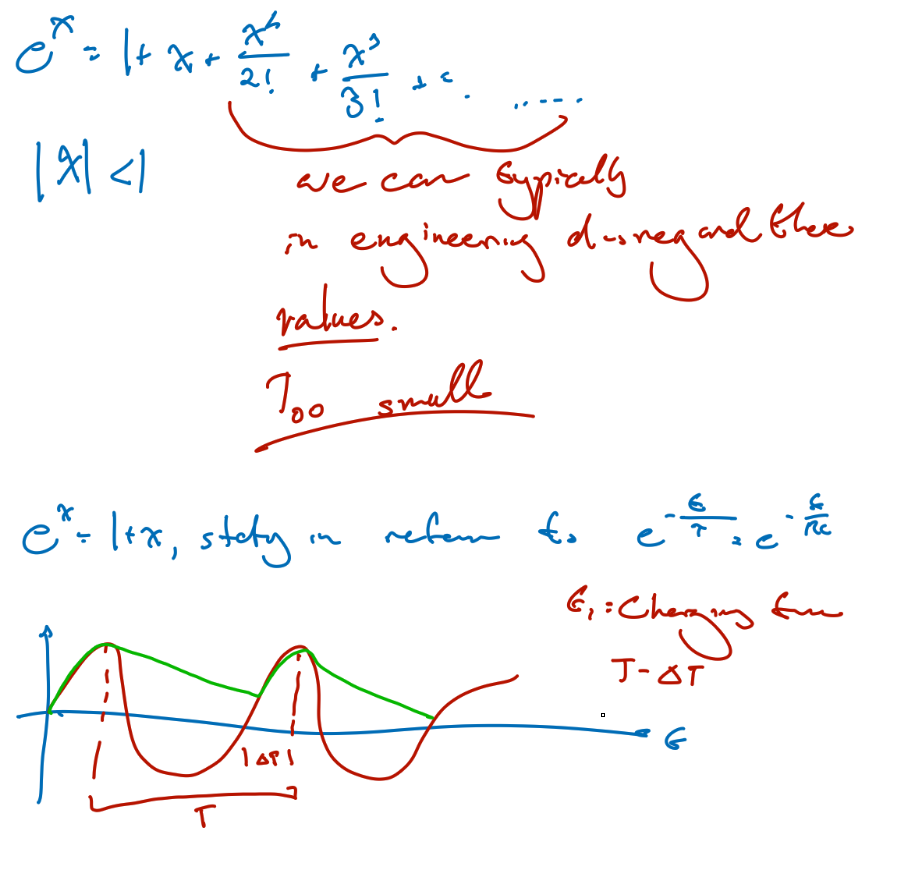 e^x = 1 + x + x^2/2! + x^3/3! + ... .....
|x| < 1
we can typically
in engineering disregard these
values.
Too small
e^x = 1+x, in return to e^(-t/τ) = e^(-t/RC)
t₁ = Charging time
T - ΔT
|ΔT|
t
T